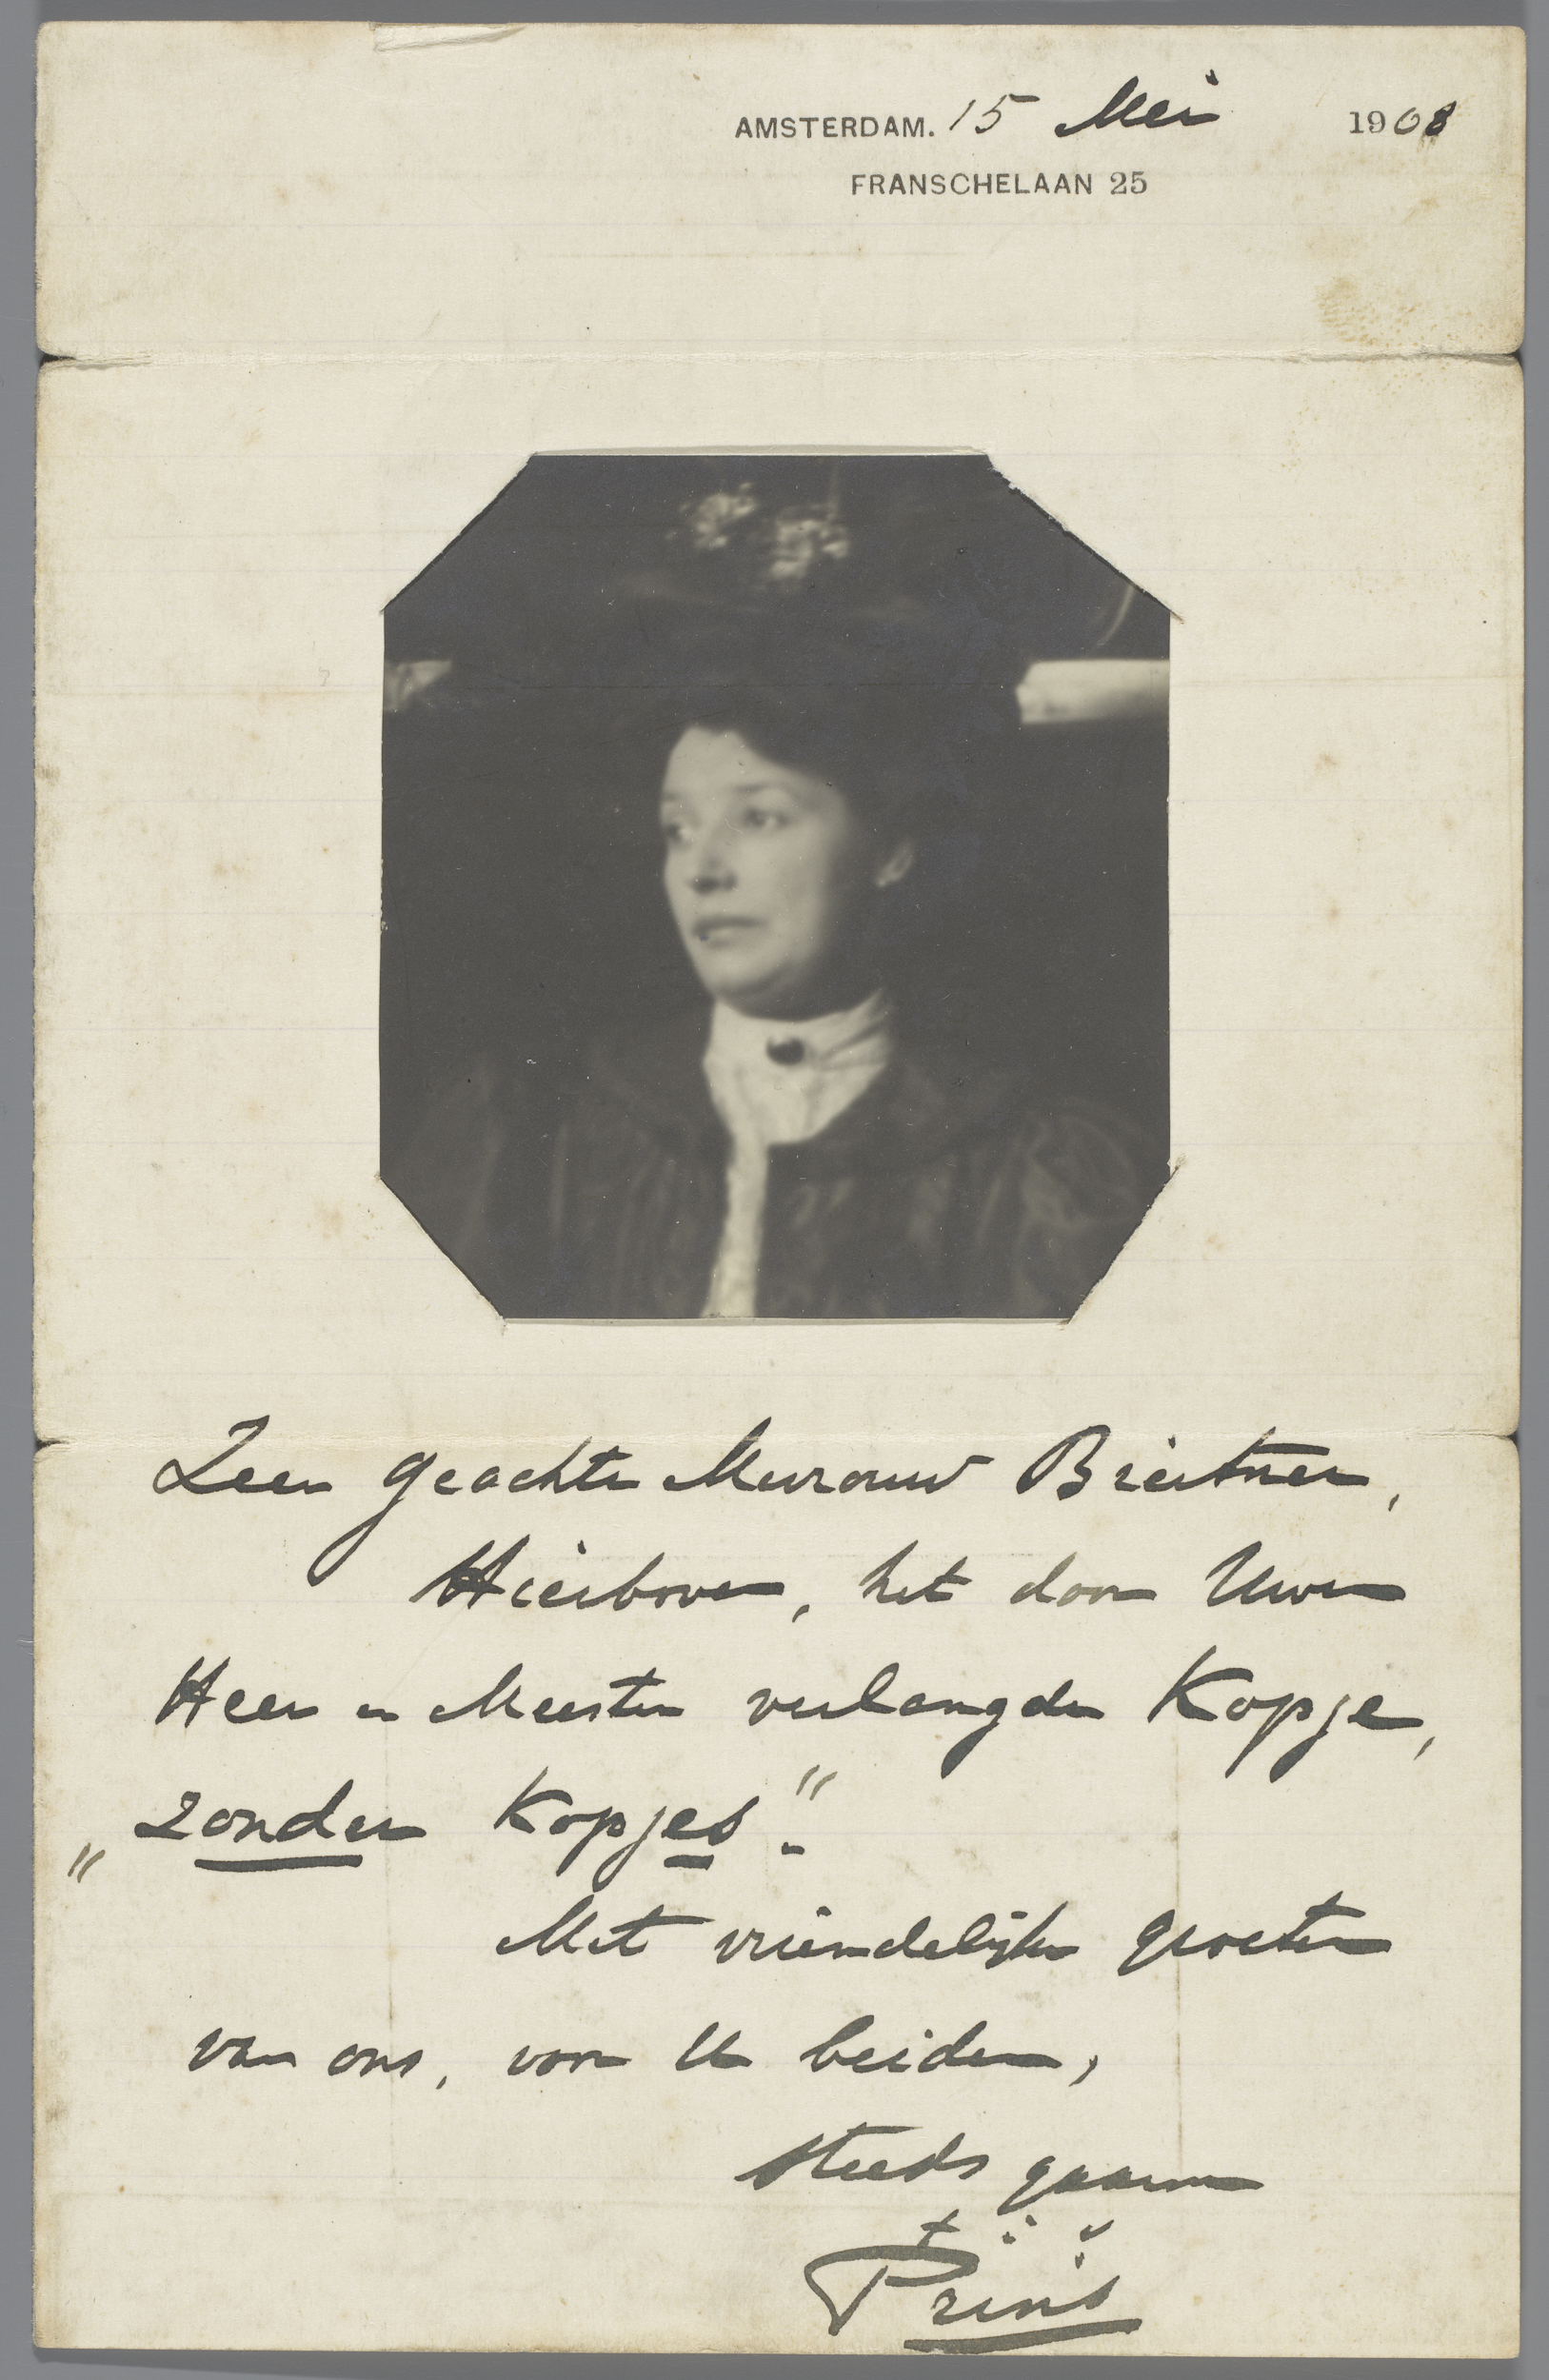 AMSTERDAM. 15 Mei 1908
FRANSCHELAAN 25
Zeer geachte Mevrouw Breitner,
Hierboven, het door Uwen
Heer en Meester verlangde Kopje,
„zonder Kopjes."
Met vriendelijke groeten
van ons, voor U beiden,
steeds gaarne
Prins